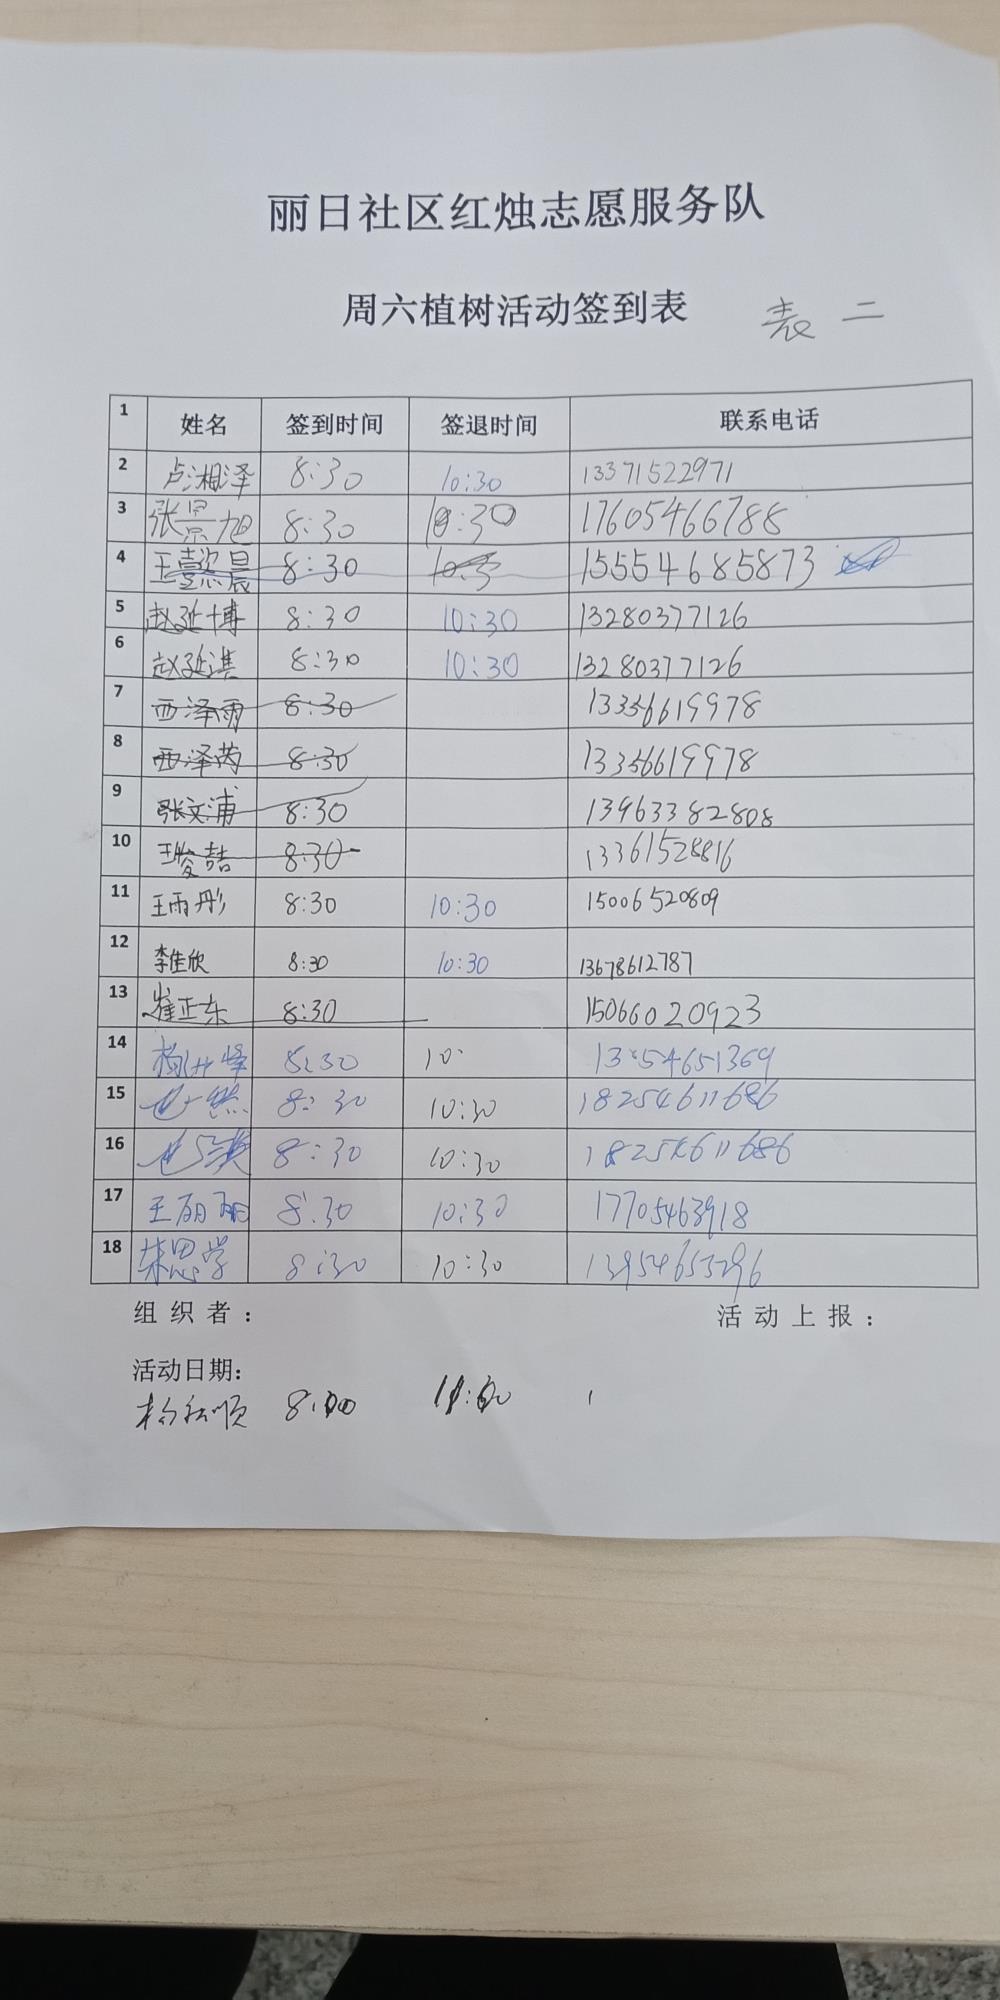 丽日社区红烛志愿服务队
周六植树活动签到表 表二
1 姓名 签到时间 签退时间 联系电话
2 卢湘泽 8:30 10:30 13371522971
3 张景旭 8:30 10:30 17605466788
4 王懿晨 8:30 10:3 15554685873
5 赵延博 8:30 10:30 13280377126
6 赵延淇 8:30 10:30 13280377126
7 西泽雨 8:30 13356619978
8 西泽芮 8:30 13356619978
9 张文浦 8:30 13963382808
10 王俊喆 8:30 13361528816
11 王雨彤 8:30 10:30 15006520809
12 李佳欣 8:30 10:30 13678612787
13 崔正东 8:30 15066020923
14 8:30 10:
15 8:30 10:30 18254611686
16 8:30 10:30 18254611686
17 王丽丽 8:30 10:30 17705463918
18 朱思学 8:30 10:30 13954653296
组织者： 活动上报：
活动日期：